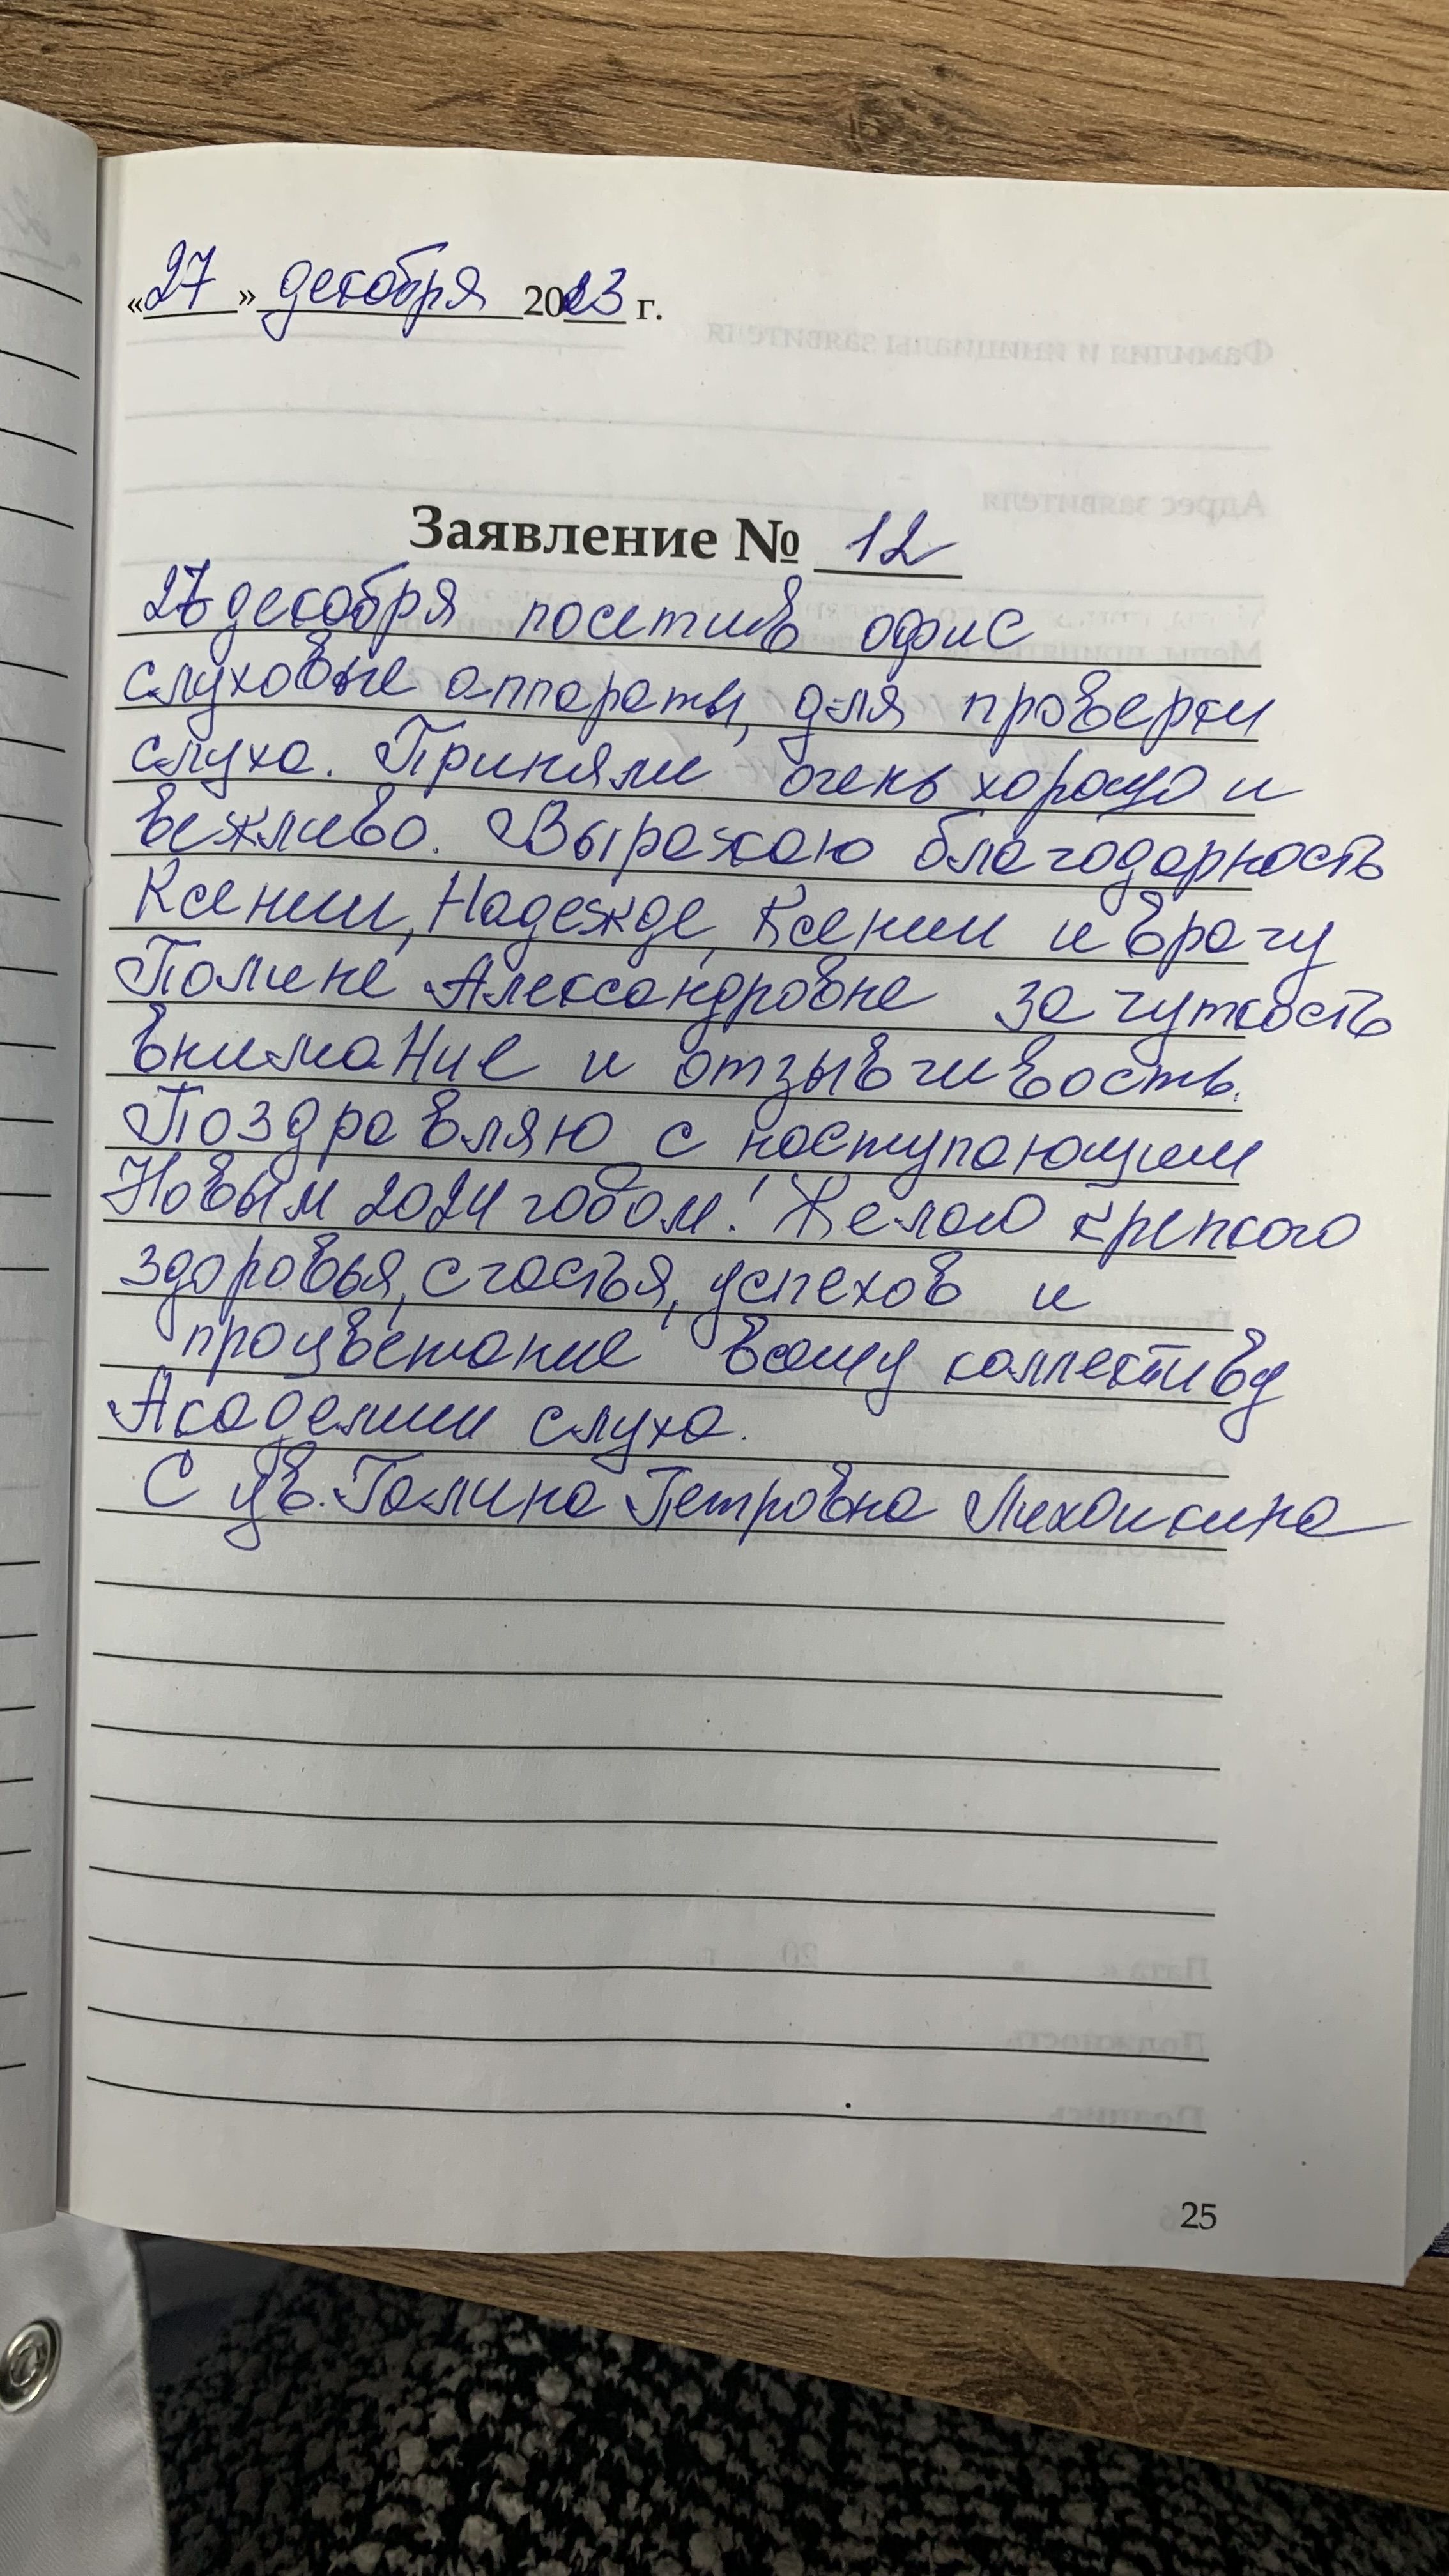 «27» декабря 2023 г.
Заявление № 12
27 декабря посетив офис
слуховые аппараты, для проверки
слуха. Приняли очень хорошо и
вежливо. Выражаю благодарность
Ксении, Надежде, Ксении и врачу
Полине Александровне за чуткость
внимание и отзывчивость.
Поздравляю с наступающим
Новым 2024 годом! Желаю крепкого
здоровья, счастья, успехов и
процветание вашему коллективу
Академии слуха.
С ув. Галина Петровна
25